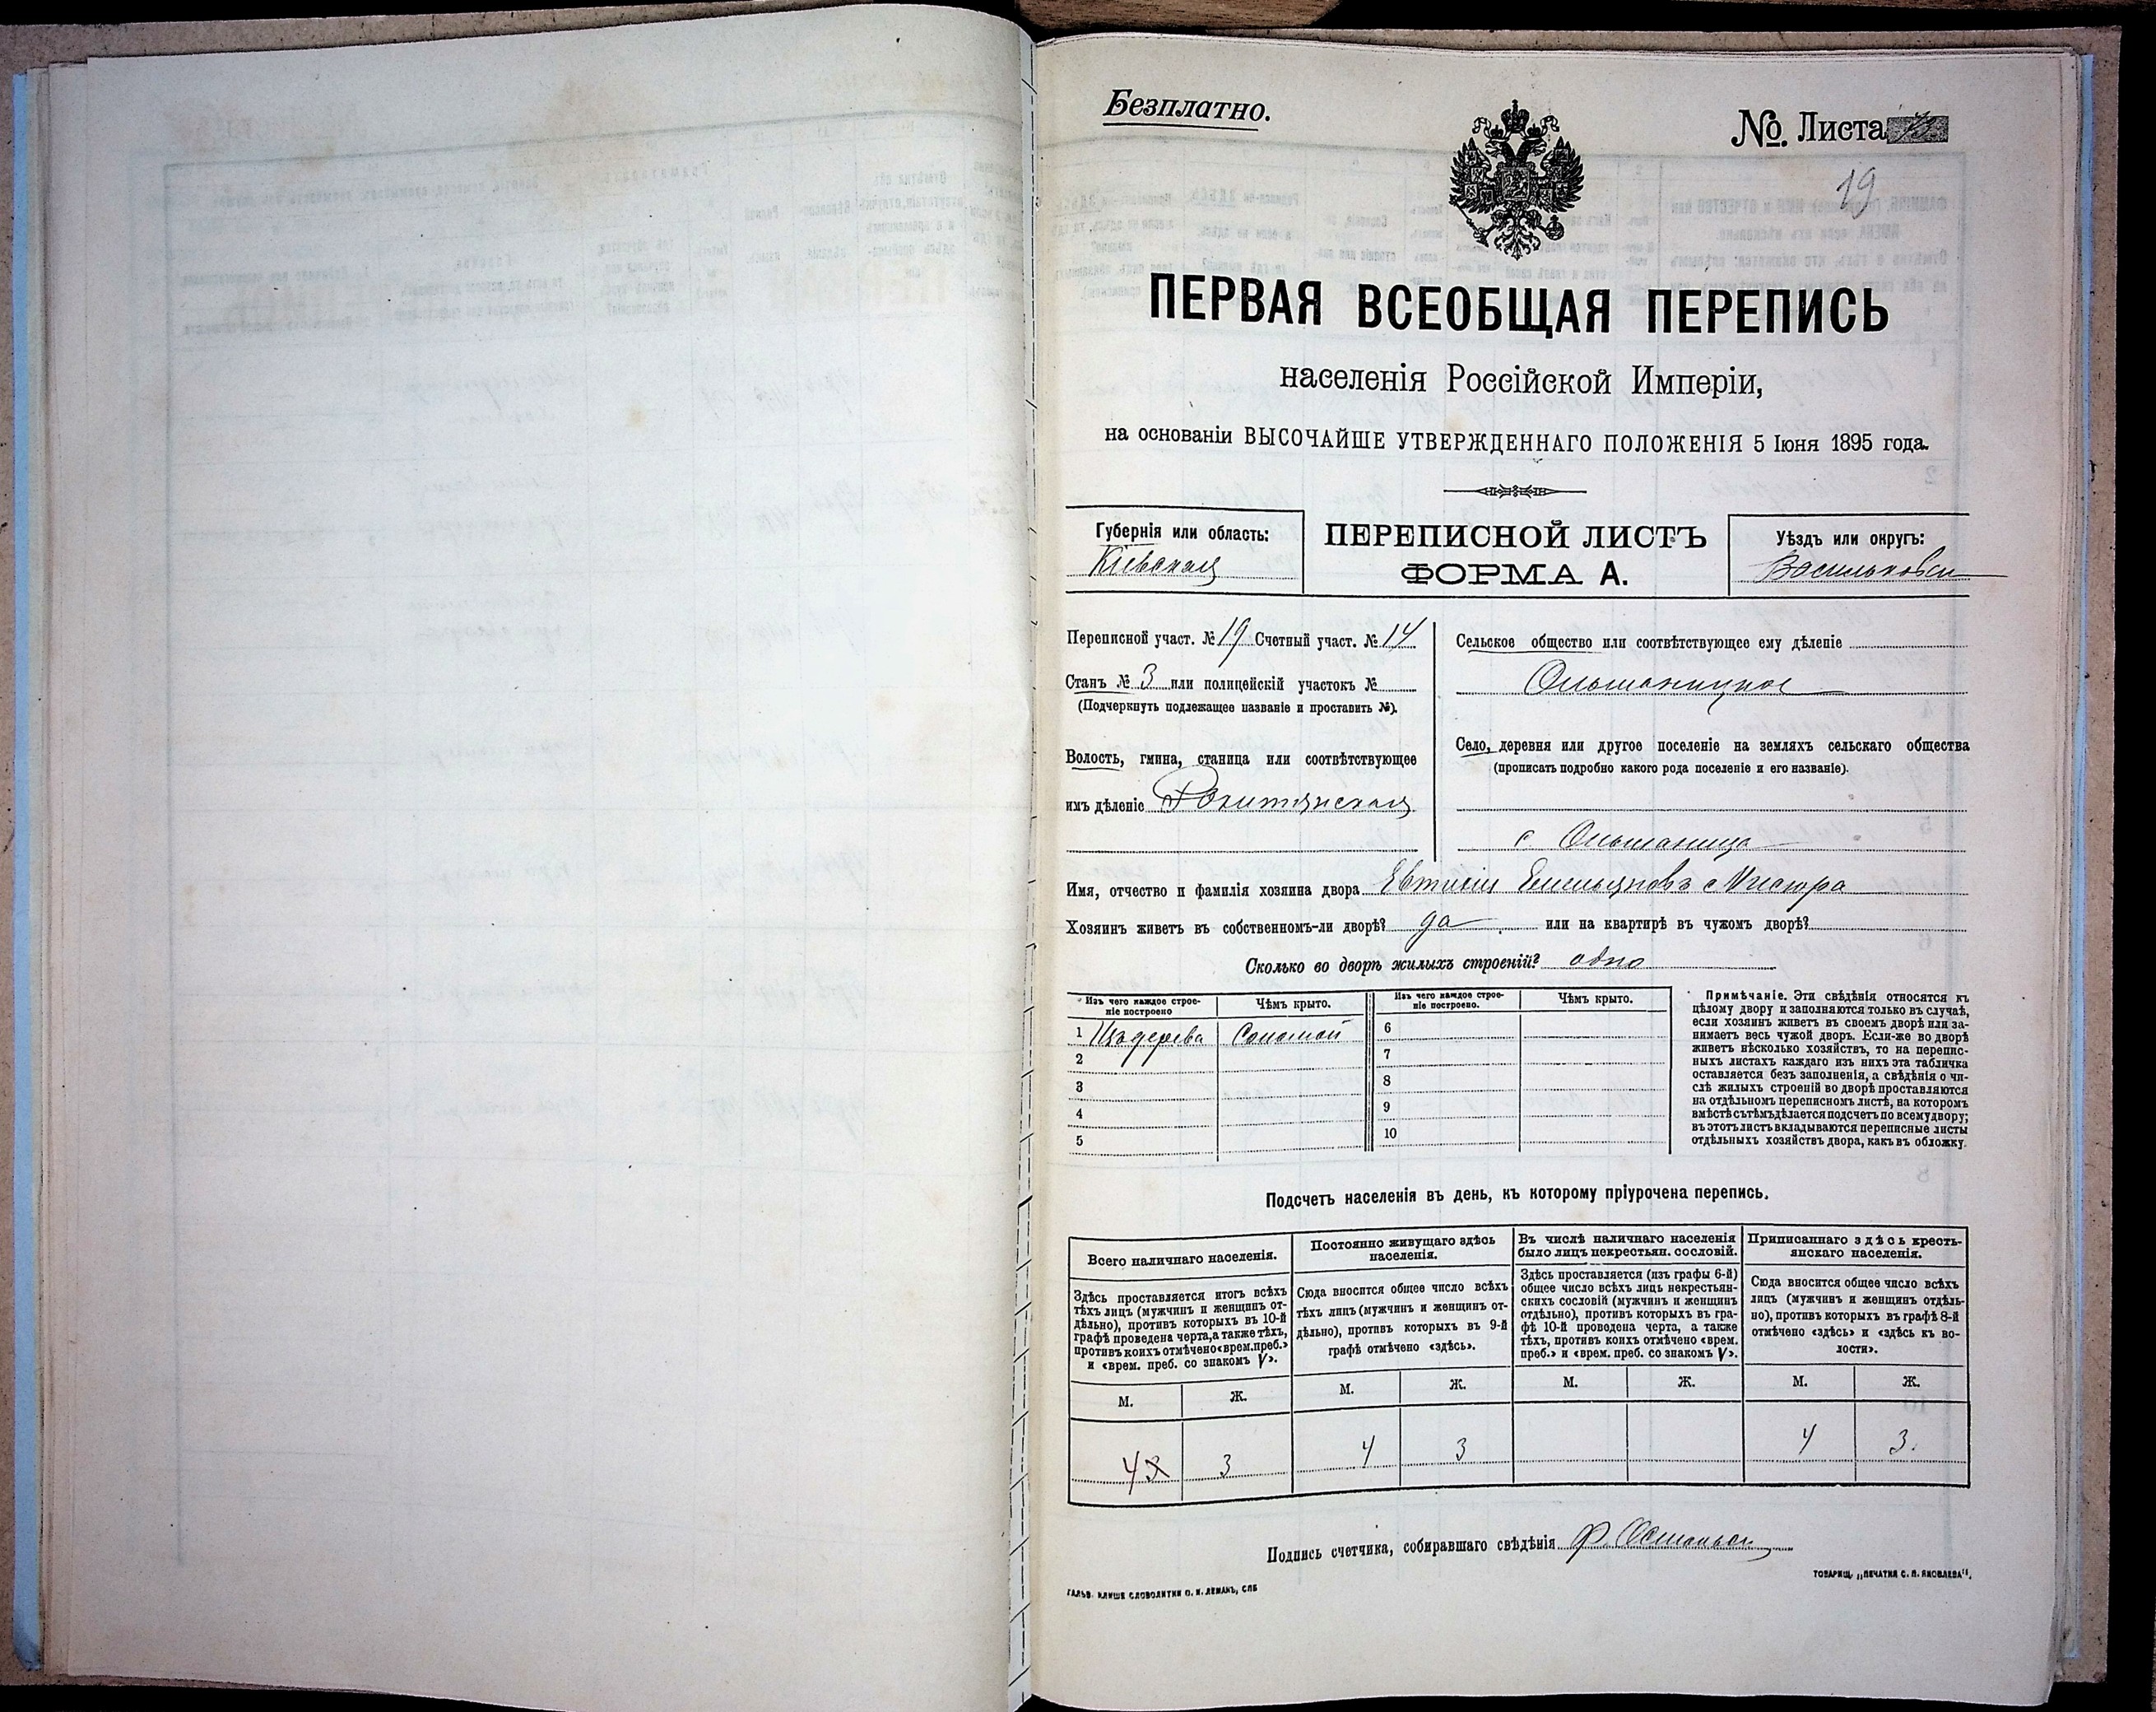 Безплатно.
№. Листа
19
ПЕРВАЯ ВСЕОБЩАЯ ПЕРЕПИСЬ
населенія Россійской Имперіи,
на основаніи ВЫСОЧАЙШЕ УТВЕРЖДЕННАГО ПОЛОЖЕНІЯ 5 Іюня 1895 года.
Губернія или область:
Кіевская
ПЕРЕПИСНОЙ ЛИСТЪ
ФОРМА А.
Уѣздъ или округъ:
Переписной участ. № 19 Счетный участ. № 14
Станъ № 3 или полицейскій участокъ №
(Подчеркнуть подлежащее названіе и проставить №).
Волость, гмина, станица или соотвѣтствующее
имъ дѣленіе Рокитянская
Сельское общество или соотвѣтствующее ему дѣленіе
Ольшаницкое
Село, деревня или другое поселеніе на земляхъ сельскаго общества
(прописать подробно какого рода поселеніе и его названіе).
с. Ольшаница
Имя, отчество и фамилія хозяина двора Евтихій Емельяновъ
Хозяинъ живетъ въ собственномъ-ли дворѣ? да или на квартирѣ въ чужомъ дворѣ?
Сколько во дворѣ жилыхъ строеній? одно
Изъ чего каждое строе-
ніе построено
Чѣмъ крыто.
Изъ чего каждое строе-
ніе построено.
Чѣмъ крыто.
1 Изъ дерева Соломой
2
3
4
5
6
7
8
9
10
Примѣчаніе. Эти свѣдѣнія относятся къ
цѣлому двору и заполняются только въ случаѣ,
если хозяинъ живетъ въ своемъ дворѣ или за-
нимаетъ весь чужой дворъ. Если-же во дворѣ
живетъ нѣсколько хозяйствъ, то на перепис-
ныхъ листахъ каждаго изъ нихъ эта табличка
оставляется безъ заполненія, а свѣдѣнія о чи-
слѣ жилыхъ строеній во дворѣ проставляются
на отдѣльномъ переписномъ листѣ, на которомъ
вмѣстѣ съ тѣмъ дѣлается подсчетъ по всему двору;
въ этотъ листъ вкладываются переписные листы
отдѣльныхъ хозяйствъ двора, какъ въ обложку.
Подсчетъ населенія въ день, къ которому пріурочена перепись.
Всего наличнаго населенія.
Здѣсь проставляется итогъ всѣхъ
тѣхъ лицъ (мужчинъ и женщинъ от-
дѣльно), противъ которыхъ въ 10-й
графѣ проведена черта, а также тѣхъ,
противъ коихъ отмѣчено «врем. преб.»
и «врем. преб. со знакомъ V».
М. Ж.
4 3 3
Постоянно живущаго здѣсь
населенія.
Сюда вносится общее число всѣхъ
тѣхъ лицъ (мужчинъ и женщинъ от-
дѣльно), противъ которыхъ въ 9-й
графѣ отмѣчено «здѣсь».
М. Ж.
4 3
Въ числѣ наличнаго населенія
было лицъ некрестьян. сословій.
Здѣсь проставляется (изъ графы 6-й)
общее число всѣхъ лицъ некрестьян-
скихъ сословій (мужчинъ и женщинъ
отдѣльно), противъ которыхъ въ гра-
фѣ 10-й проведена черта, а также
тѣхъ, противъ коихъ отмѣчено «врем.
преб.» и «врем. преб. со знакомъ V».
М. Ж.
Приписаннаго здѣсь кресть-
янскаго населенія.
Сюда вносится общее число всѣхъ
лицъ (мужчинъ и женщинъ отдѣль-
но), противъ которыхъ въ графѣ 8-й
отмѣчено «здѣсь» и «здѣсь къ во-
лости».
М. Ж.
4 3.
Подпись счетчика, собиравшаго свѣдѣнія Ф.
ГАЛЬВ. КЛИШЕ СЛОВОЛИТНИ О. И. ЛЕМАНЪ, СПБ
ТОВАРИЩ. „ПЕЧАТНЯ С. П. ЯКОВЛЕВА".